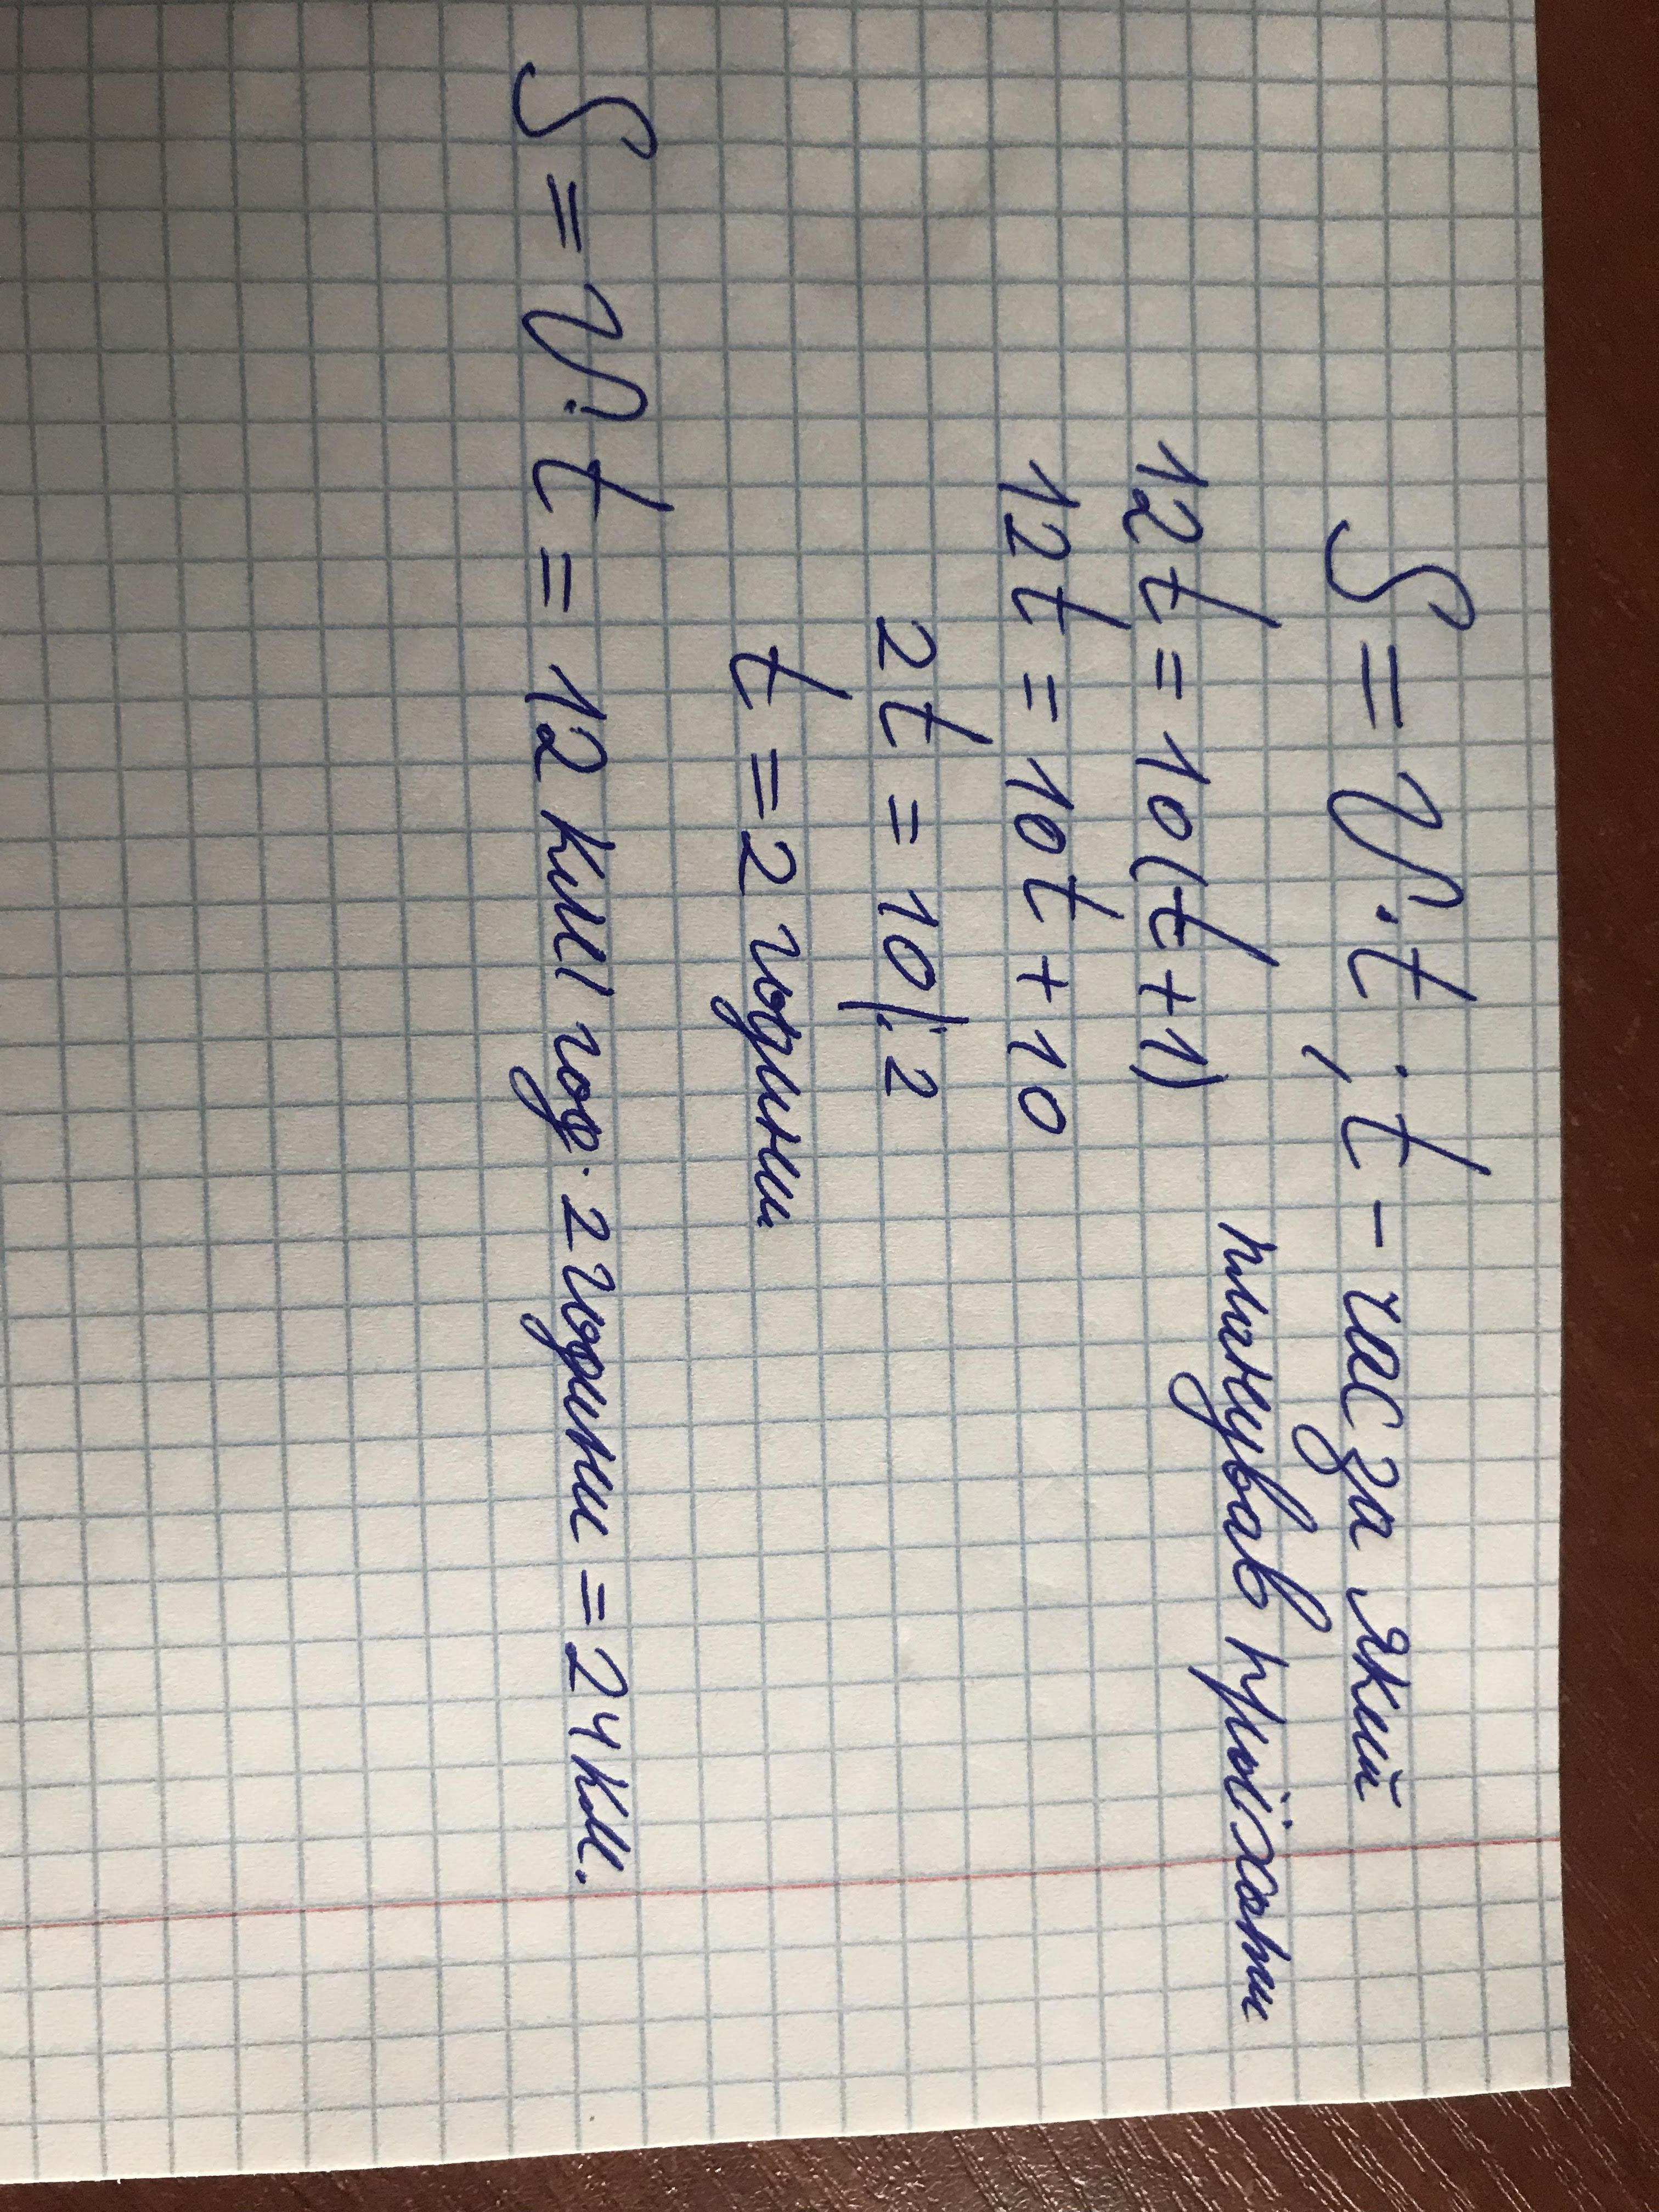 S = V · t ; t - час за який
планував приїхати
12t = 10(t + 1)
12t = 10t + 10
2t = 10 |: 2
t = 2 години
S = V · t = 12 км/год · 2 години = 24 км.